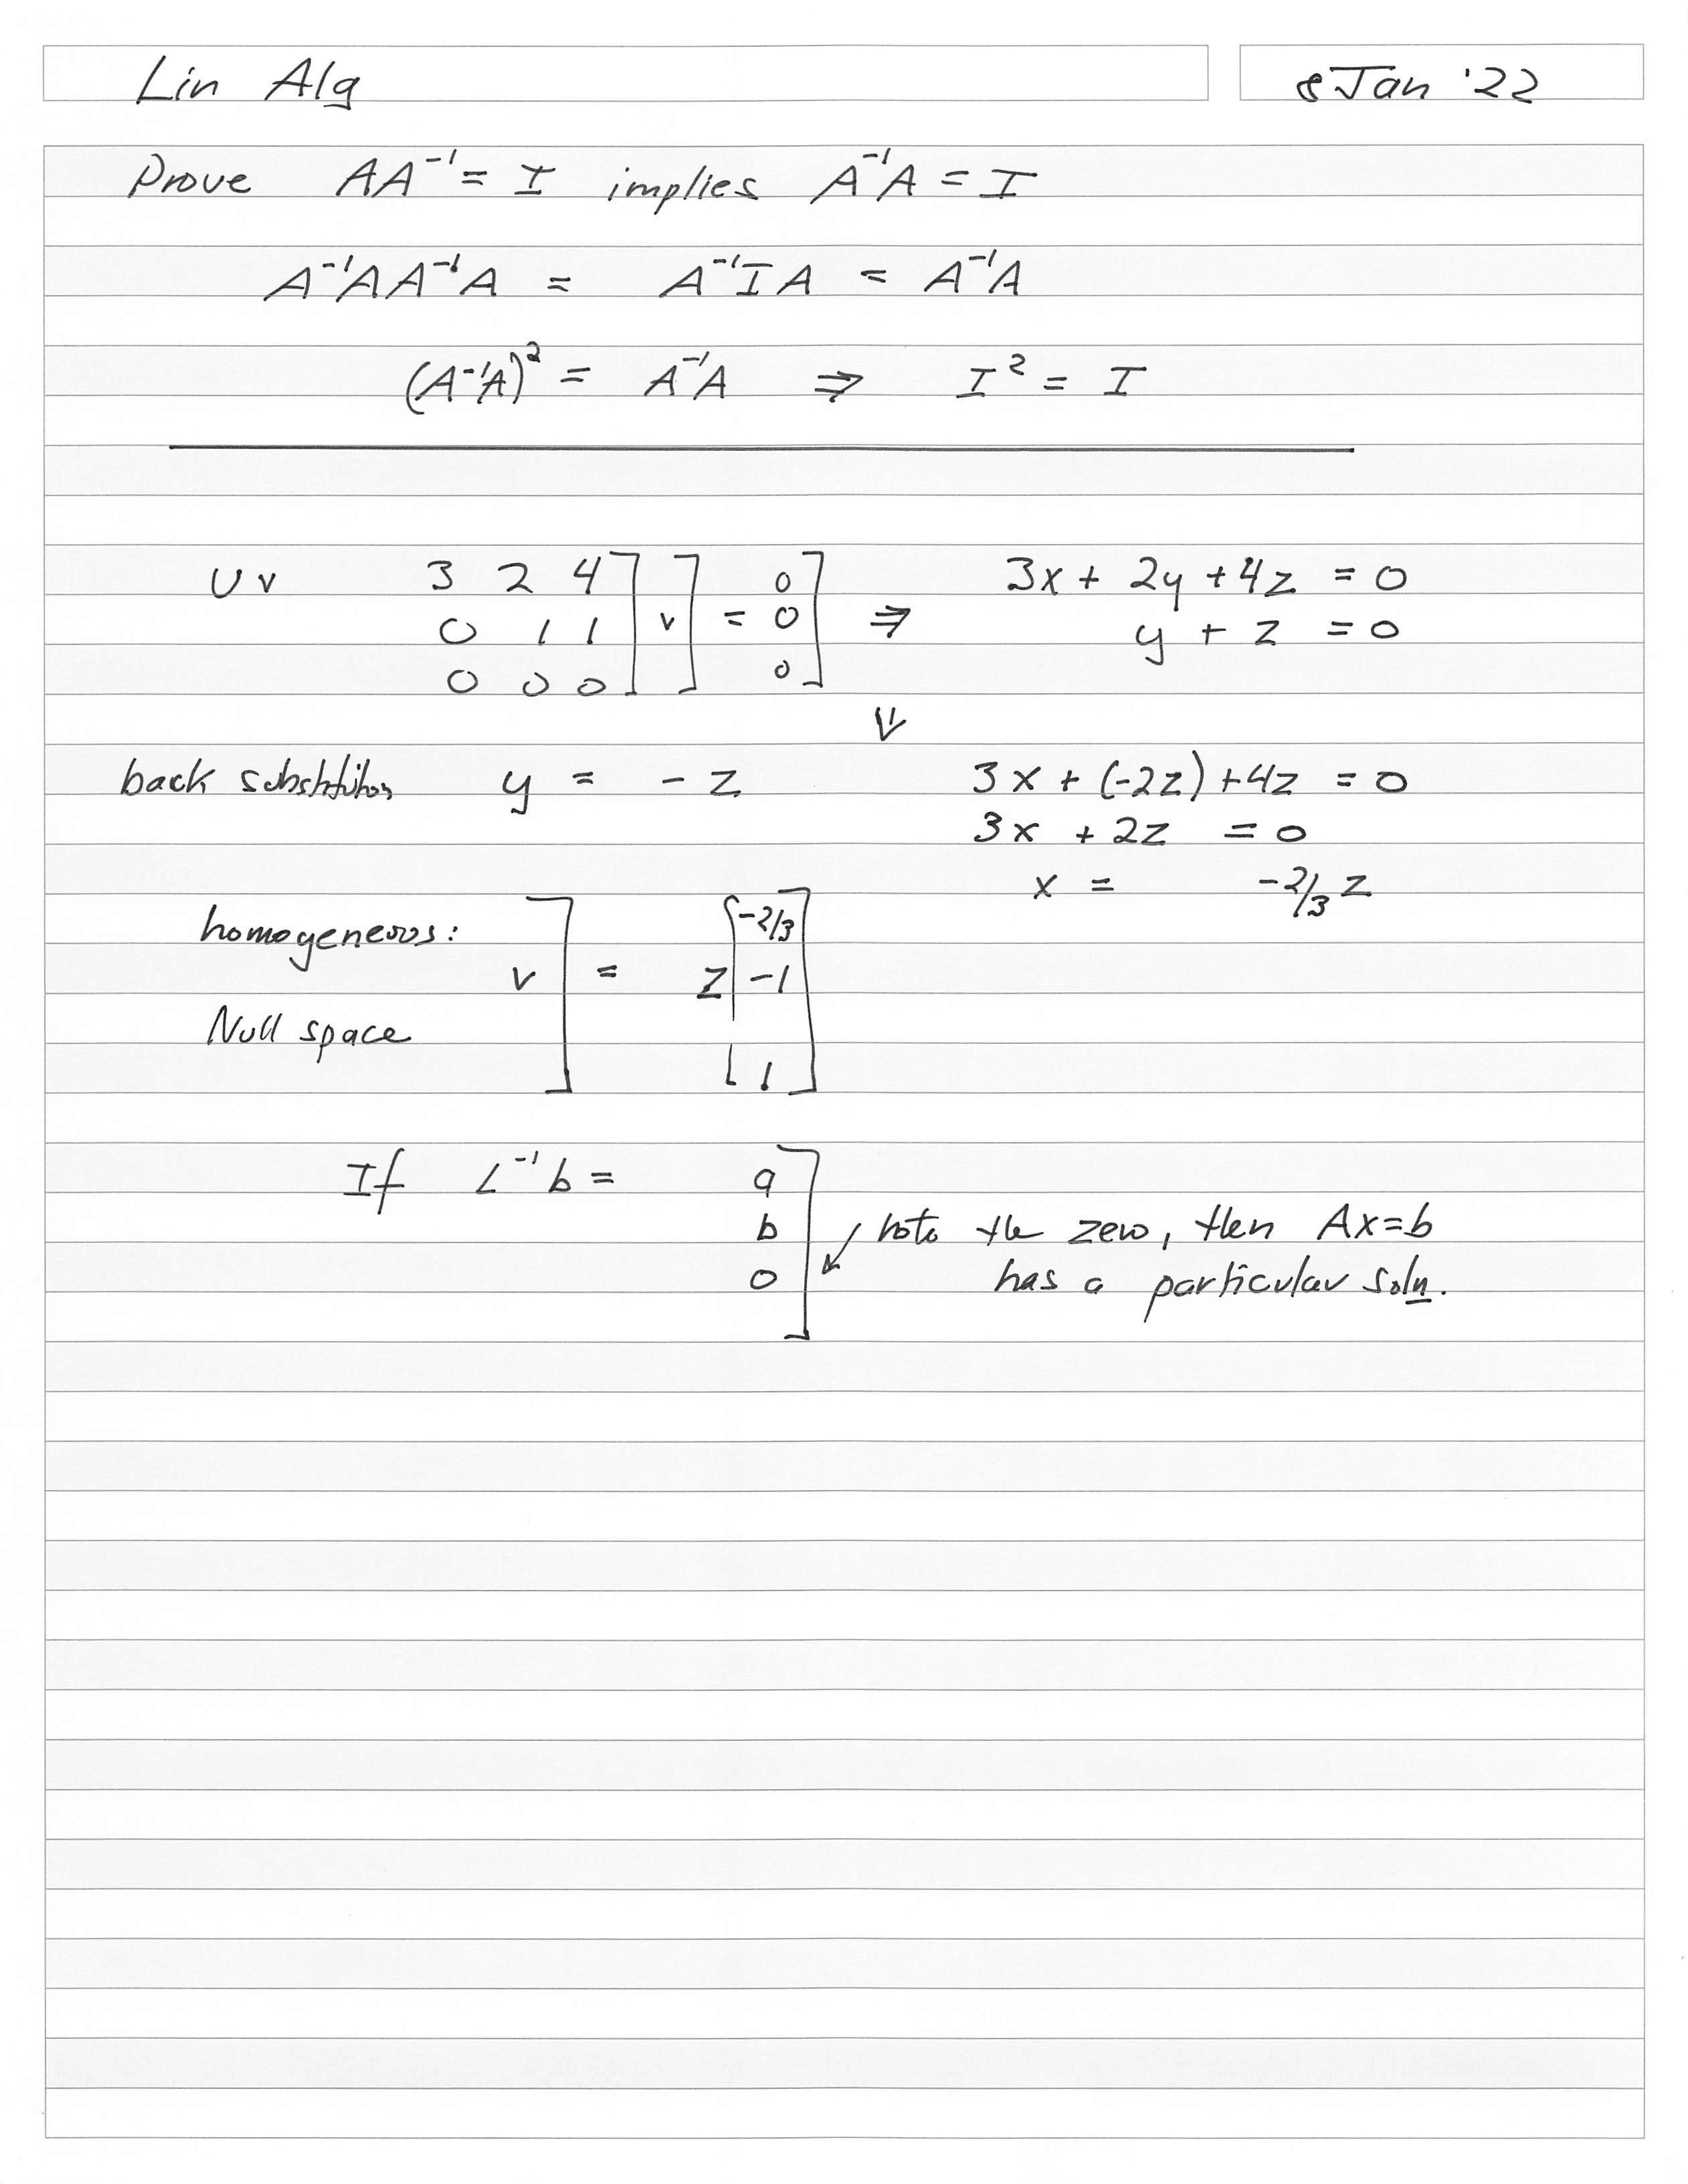 Lin Alg
8 Jan '22
Prove AA⁻¹ = I implies A⁻¹A = I
A⁻¹AA⁻¹A = A⁻¹IA = A⁻¹A
(A⁻¹A)² = A⁻¹A ⇒ I² = I
Uv 3 2 4] ] 0] 3x + 2y + 4z = 0
0 1 1 v = 0 ⇒ y + z = 0
0 0 0 0
⇓
back substitution y = -z 3x + (-2z) + 4z = 0
3x + 2z = 0
x = -2/3 z
homogeneous: [-2/3]
v] = z -1
Null space
1
If L⁻¹b = a]
b note the zero, then Ax=b
0 ↙ has a particular soln.